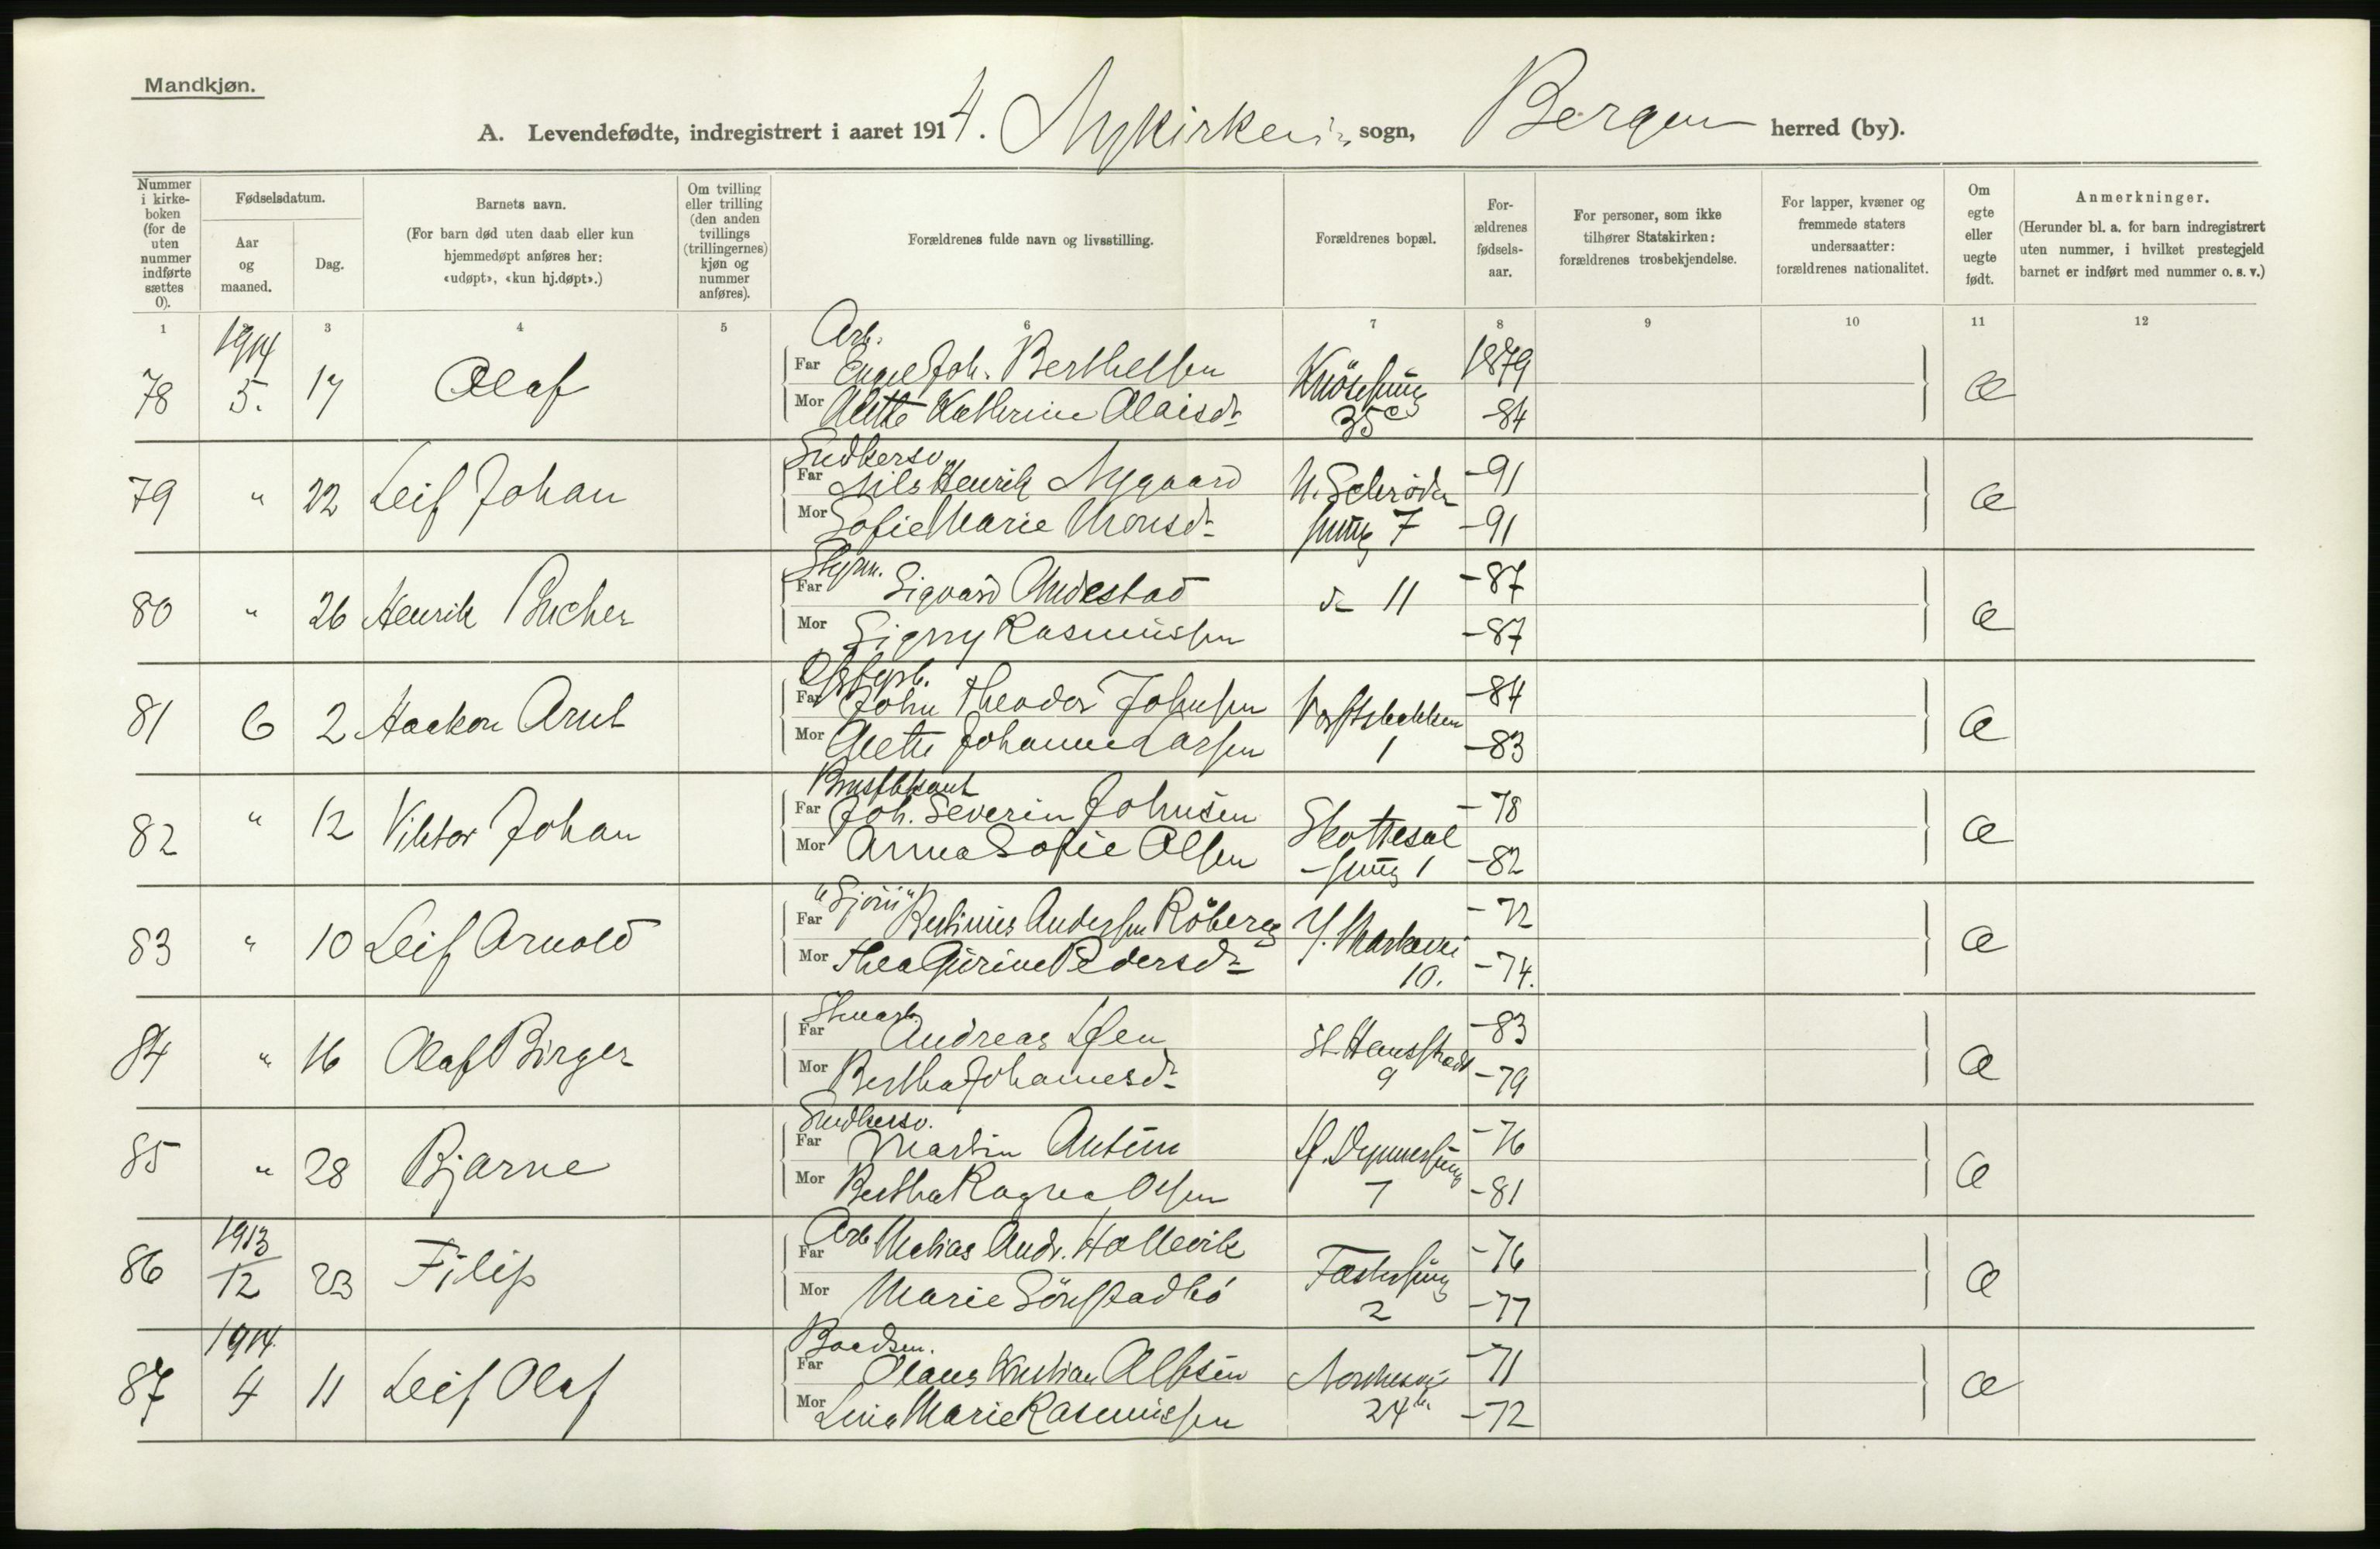 Mandkjøn.
A. Levendefødte, indregistrert i aaret 1914. Nykirkens sogn, Bergen herred (by).
Nummer i kirkeboken (for de uten nummer indførte sættes 0).
Fødselsdatum.
Aar og maaned.
Dag.
Barnets navn.
(For barn død uten daab eller kun hjemmedøpt anføres her: «udøpt», «kun hj.døpt».)
Om tvilling eller trilling (den anden tvillings (trillingernes) kjøn og nummer anføres).
Forældrenes fulde navn og livsstilling.
Forældrenes bopæl.
Forældrenes fødselsaar.
For personer, som ikke tilhører Statskirken: forældrenes trosbekjendelse.
For lapper, kvæner og fremmede staters undersaatter: forældrenes nationalitet.
Om egte eller uegte født.
Anmerkninger.
(Herunder bl. a. for barn indregistrert uten nummer, i hvilket prestegjeld barnet er indført med nummer o. s. v.)
1 3 4 5 6 7 8 9 10 11 12
1914 Arb.
78 5. 17 Olaf Far Joh. Berthelsen 1879 Æ
Mor Kathrine Olaisdr 35c -84
Snedkersv.
79 " 22 Leif Johan Far Nils Henrik Nygaard N. Schrøder -91 Æ
Mor Sofie Marie Monsdr smug 7 -91
Styrm.
80 " 26 Henrik Bucher Far Sigvard Andestad dr 11 -87 Æ
Mor Signy Rasmussen -87
81 6 2 Haakon Arnt Far John Theodor Johnsen -84 Æ
Mor Johanne Larsen 1 -83
82 " 12 Viktor Johan Far Joh. Severin Johnsen Skottesal -78 Æ
Mor Anna Sofie Olsen -smug 1 -82
83 " 10 Leif Arnold Far Bertinius Andersen Röberg Y. Markevei -72 Æ
Mor Thea Gurine Pedersdr 10. -74.
84 " 16 Olaf Birger Far Andreas -83 Æ
Mor Bertha Johannesdr 9 -79
Snedkersv.
85 " 28 Bjarne Far Martin -76 Æ
Mor Bertha Ragna Olsen 7 -81
1913 Arb
86 12 23 Filip Far Andr. Hollevik -76 Æ
Mor Marie 2 -77
1914. Baadsm.
87 4 11 Leif Olaf Far Olaus Kristian -71 Æ
Mor Lina Marie Rasmussen 24 -72